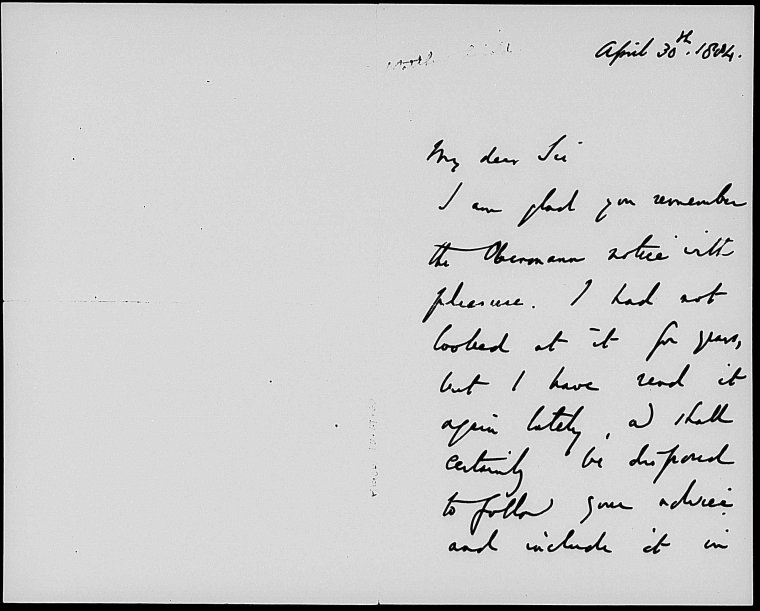 April 30th. 1884.
My dear Sir
I am glad you remember
the Obermann notice with
pleasure. I had not
looked at it for years,
but I have read it
again lately, and shall
certainly be disposed
to follow your advice
and include it in